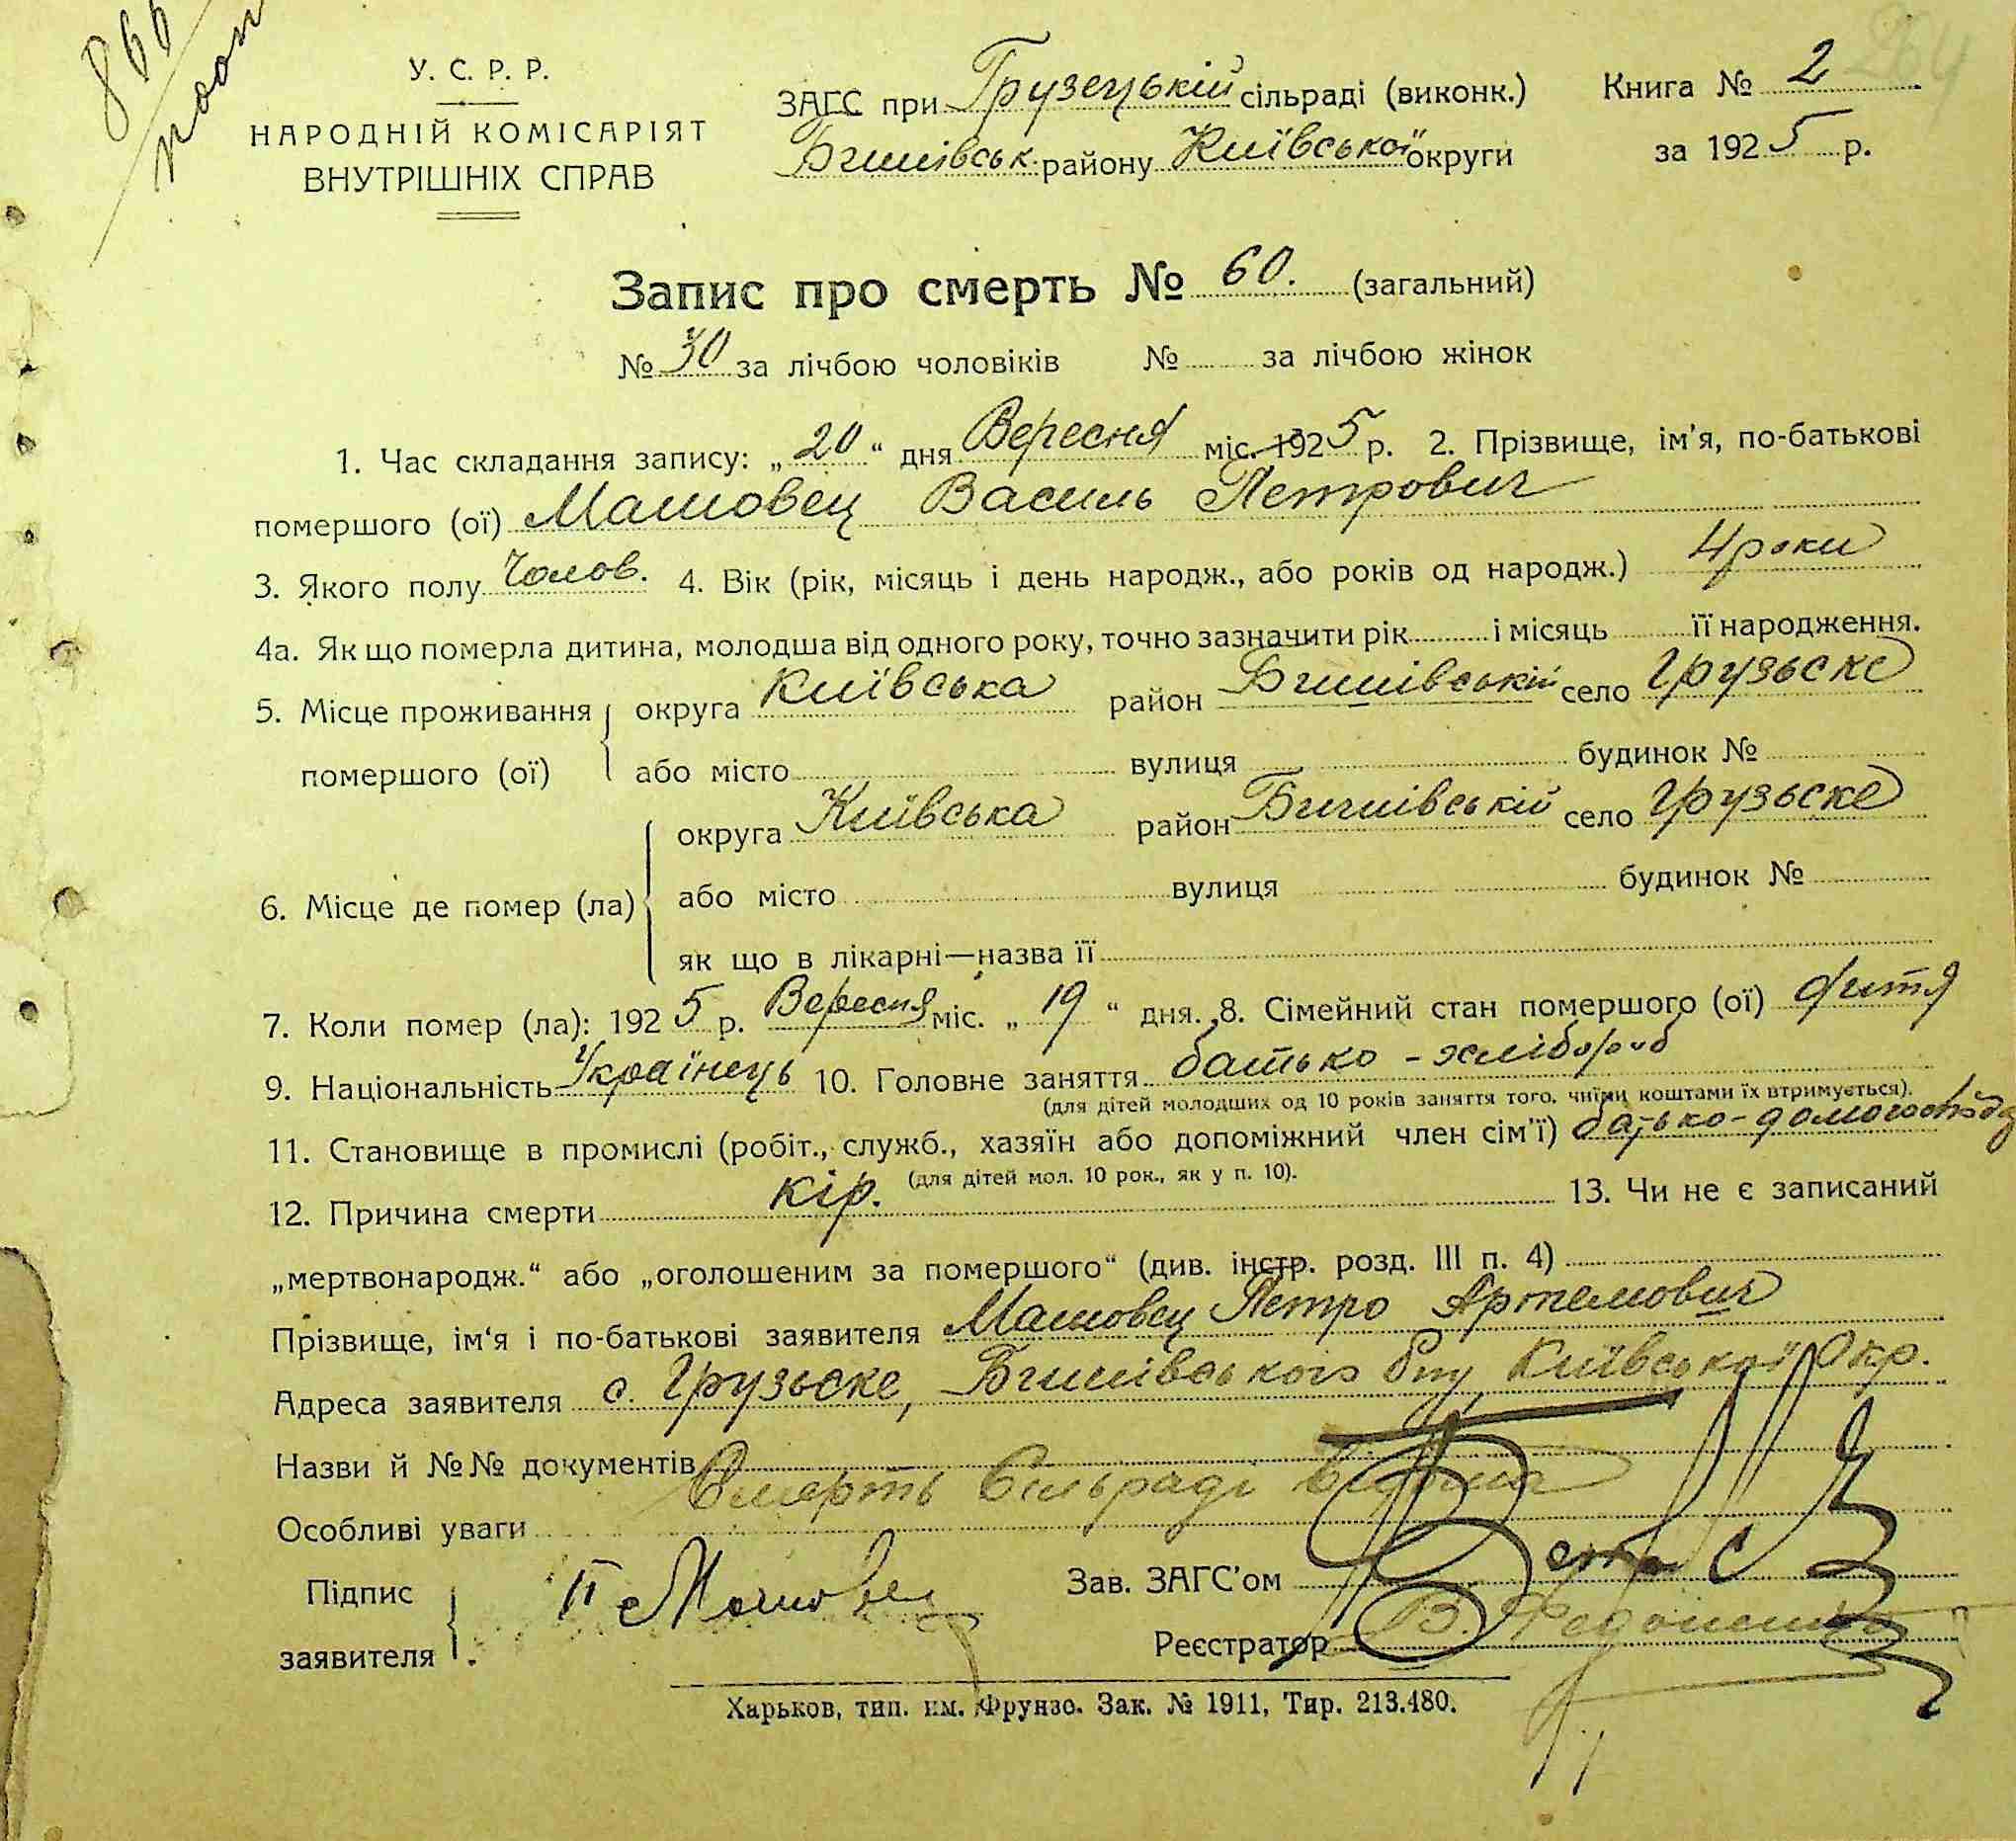 264
866
У. С. Р. Р.
НАРОДНІЙ КОМІСАРІЯТ
ВНУТРІШНІХ СПРАВ
ЗАГС при Грузецькій сільраді (виконк.)
Бишівськ. району Київської округи
Книга № 2
за 1925 р.
Запис про смерть № 60. (загальний)
№ 30 за лічбою чоловіків № за лічбою жінок
1. Час складання запису: „20“ дня Вересня міс. 1925 р. 2. Прізвище, ім'я, по-батькові
помершого (ої) Машовец Василь Петрович
3. Якого полу Чолов. 4. Вік (рік, місяць і день народж., або років од народж.) 4 роки
4а. Як що померла дитина, молодша від одного року, точно зазначити рік і місяць її народження.
5. Місце проживання помершого (ої) округа Київська район Бишівській село Грузьске
або місто вулиця будинок №
6. Місце де помер (ла) округа Київська район Бишівській село Грузьске
або місто вулиця будинок №
як що в лікарні—назва її
7. Коли помер (ла): 1925 р. Вересня міс. „19“ дня. 8. Сімейний стан помершого (ої) дитя
9. Національність Українець 10. Головне заняття батько - хлібороб
(для дітей молодших од 10 років заняття того, чиїми коштами їх втримується).
11. Становище в промислі (робіт., служб., хазяїн або допоміжний член сім'ї) батько-домогосподар
(для дітей мол. 10 рок., як у п. 10).
12. Причина смерти кір. 13. Чи не є записаний
„мертвонародж.“ або „оголошеним за помершого“ (див. інстр. розд. III п. 4)
Прізвище, ім'я і по-батькові заявителя Машовец Петро Артемович
Адреса заявителя с. Грузьске, Бишівського р-ну Київської Окр.
Назви й №№ документів
Смерть Сільраді відома
Особливі уваги
Підпис заявителя П Машовец
Зав. ЗАГС'ом
Реєстратор В.
Харьков, тип. им. Фрунзе. Зак. № 1911, Тир. 213.480.